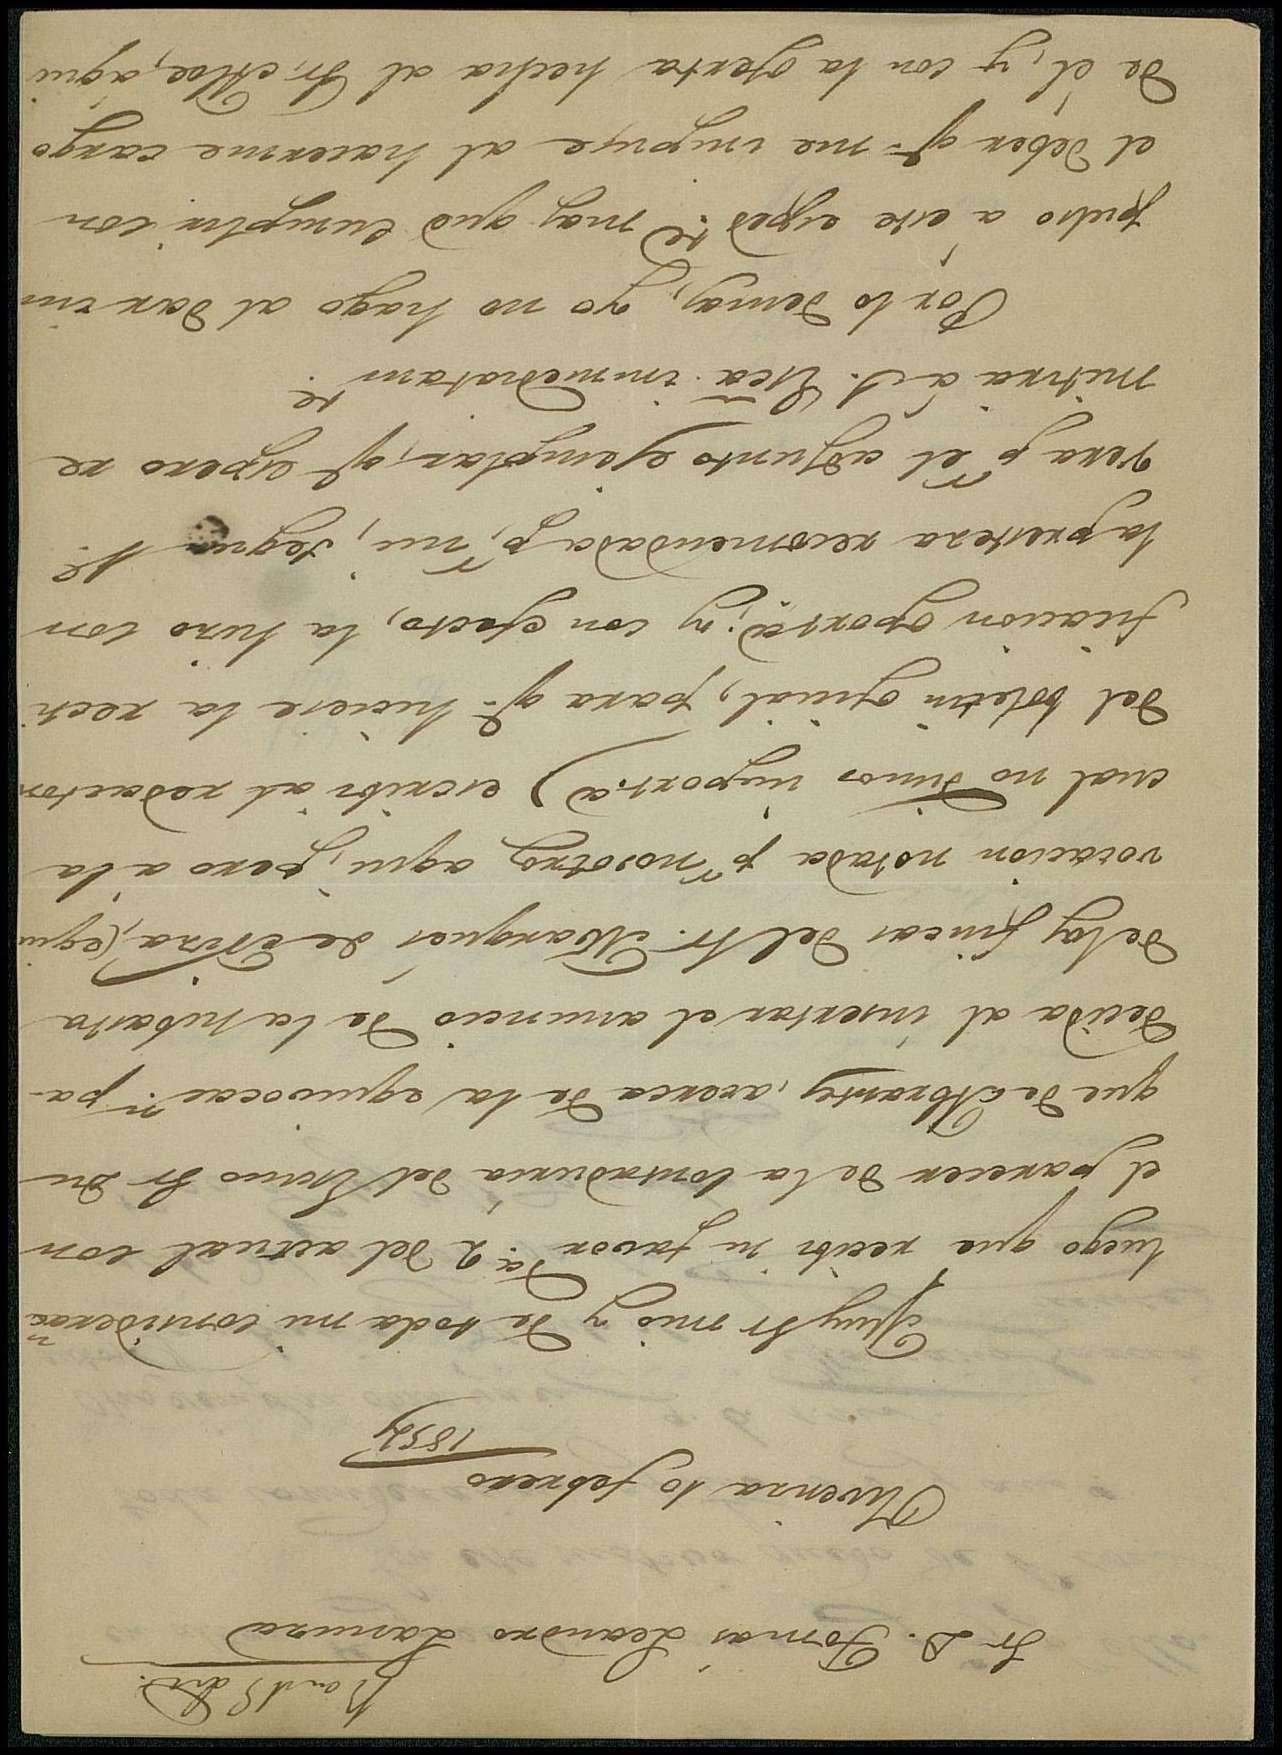 Sr D. Tomás Leandro Lamuza
Olivenza 10 febrero
1854
Muy Sr mio y de toda mi consideracn
luego que recibí su favor fha. 2 del actual con
el parecer de la Contaduria del Excmo Sr Du
que de Abrantes, acerca de la equivocacn. pa-
decida al insertar el anuncio de la subasta
de las fincas del Sr. Marques de Nisa, (equi
vocacion notada pr nosotros aqui, pero a la
cual no dimos importa) escribí al redactor
del boletin oficial, para qe hiciese la recti
ficacion oporta; y con efecto, la hizo con
la presteza recomendada pr mi, segun V.
vera pr el adjunto ejemplar, qe espero re
mitirá á S. Exca. inmediatamte.
Por lo demas, yo no hago al dar im
pulso a este expedte. mas que cumplir con
el deber qe me impuse al hacerme cargo
de él, y con la oferta hecha al Sr. Moe, aqui